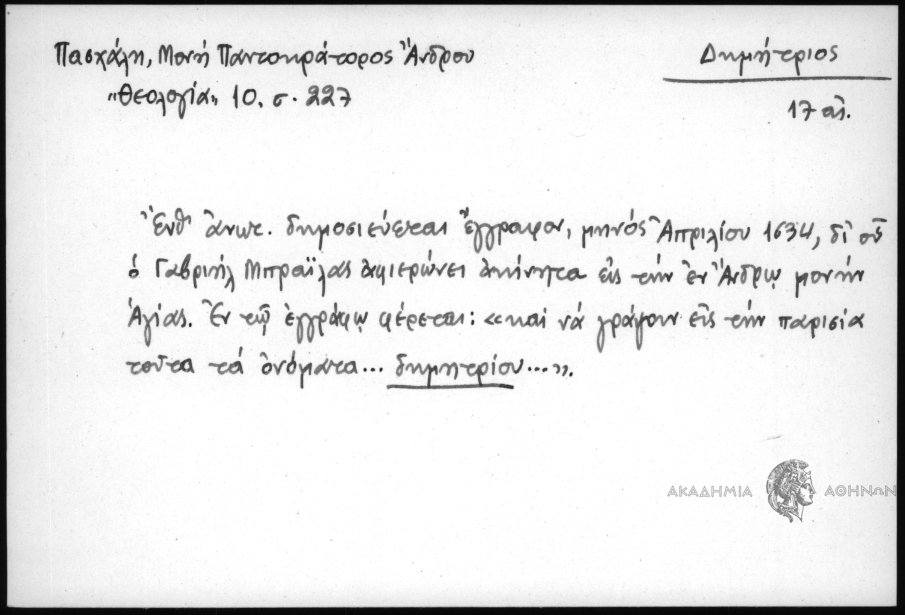 Πασχάλη, Μονή Παντοκράτορος Ἄνδρου
Δημήτριος
"Θεολογία" 10. σ. 227
17 αἰ.
Ἔνθ' ἄνωτ. δημοσιεύεται ἔγγραφον, μηνός Ἀπριλίου 1634, δι' οὗ
ὁ Γαβριήλ Μπραΐλας ἀφιερώνει ἀκίνητα εἰς τήν ἐν Ἄνδρῳ μονήν
Ἁγίας. Ἐν τῷ ἐγγράφῳ φέρεται: «καί νά γράφουν εἰς τήν παρισία
τοῦτα τά ὀνόματα... δημητρίου...».
ΑΚΑΔΗΜΙΑ ΑΘΗΝΩΝ